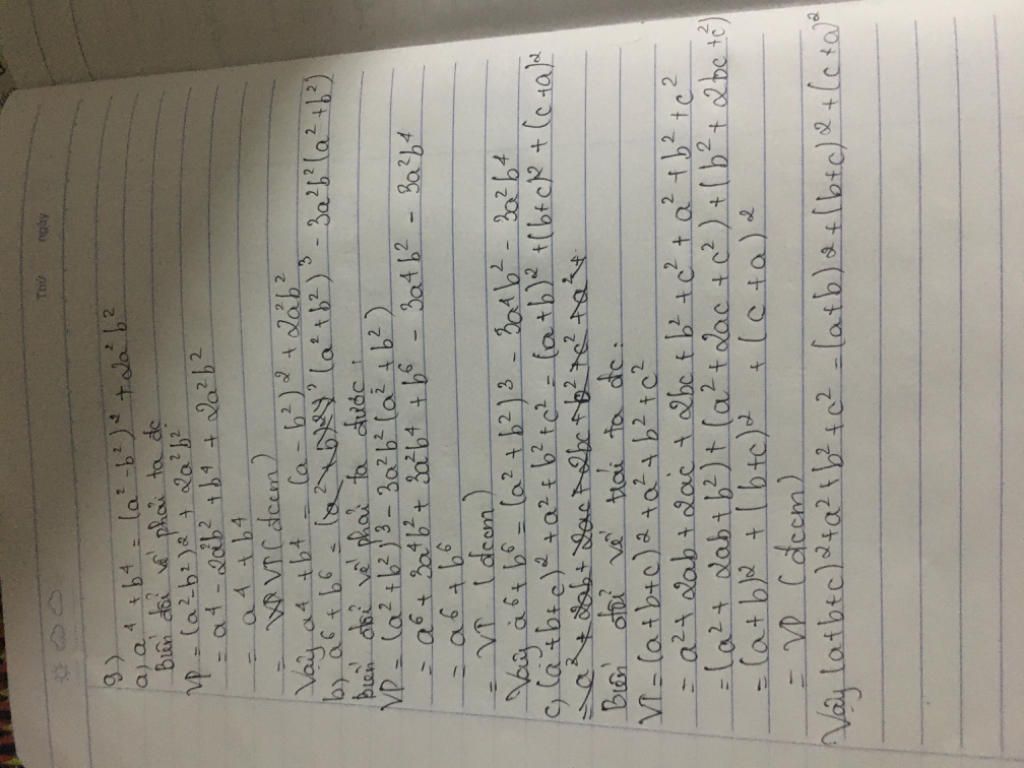 Thứ ngày
9)
a) a⁴ + b⁴ = (a² - b²)² + 2a²b²
Biến đổi vế phải ta dc
VP = (a² - b²)² + 2a²b²
= a⁴ - 2a²b² + b⁴ + 2a²b²
= a⁴ + b⁴
= VT (dccm)
Vậy a⁴ + b⁴ = (a - b²)² + 2a²b²
b) a⁶ + b⁶ = (a² + b²)³ - 3a²b²(a² + b²)
Biến đổi vế phải ta được:
VP = (a² + b²)³ - 3a²b²(a² + b²)
= a⁶ + 3a⁴b² + 3a²b⁴ + b⁶ - 3a⁴b² - 3a²b⁴
= a⁶ + b⁶
= VT (dccm)
Vậy a⁶ + b⁶ = (a² + b²)³ - 3a⁴b² - 3a²b⁴
c, (a+b+c)² + a² + b² + c² = (a+b)² + (b+c)² + (c+a)²
= a² + 2ab + 2ac + 2bc + b² + c² + a² +
Biến đổi vế trái ta dc:
VT = (a+b+c)² + a² + b² + c²
= a² + 2ab + 2ac + 2bc + b² + c² + a² + b² + c²
= (a² + 2ab + b²) + (a² + 2ac + c²) + (b² + 2bc + c²)
= (a+b)² + (b+c)² + (c+a)²
= VP (dccm)
Vậy (a+b+c)² + a² + b² + c² = (a+b)² + (b+c)² + (c+a)²